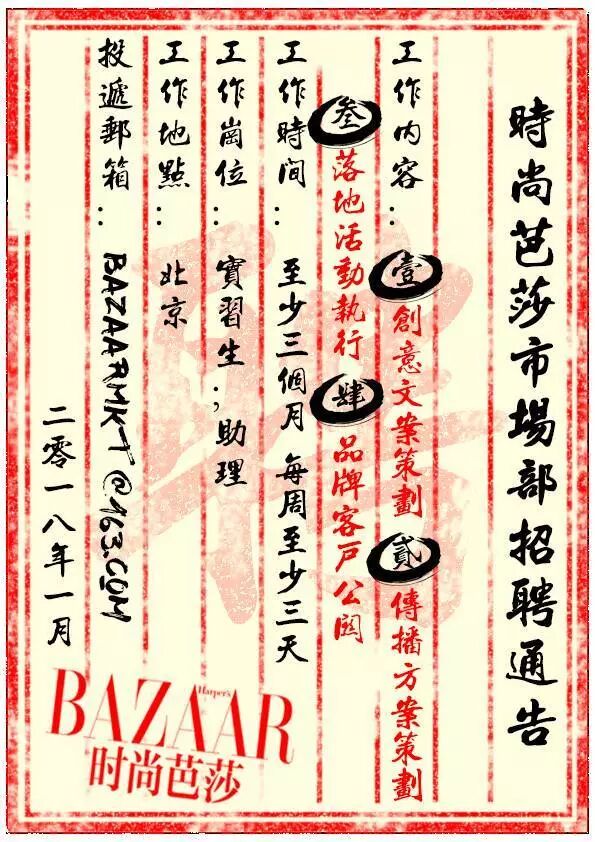 時尚芭莎市場部招聘通告
工作内容：壹創意文案策劃 貳傳播方案策劃
叁落地活動執行 肆品牌客戸公関
工作時间：至少三個月 每周至少三天
工作崗位：實習生；助理
工作地點：北京
投遞郵箱：BAZAARMKT@163.COM
二零一八年一月
Harper's
BAZAAR
时尚芭莎
聘